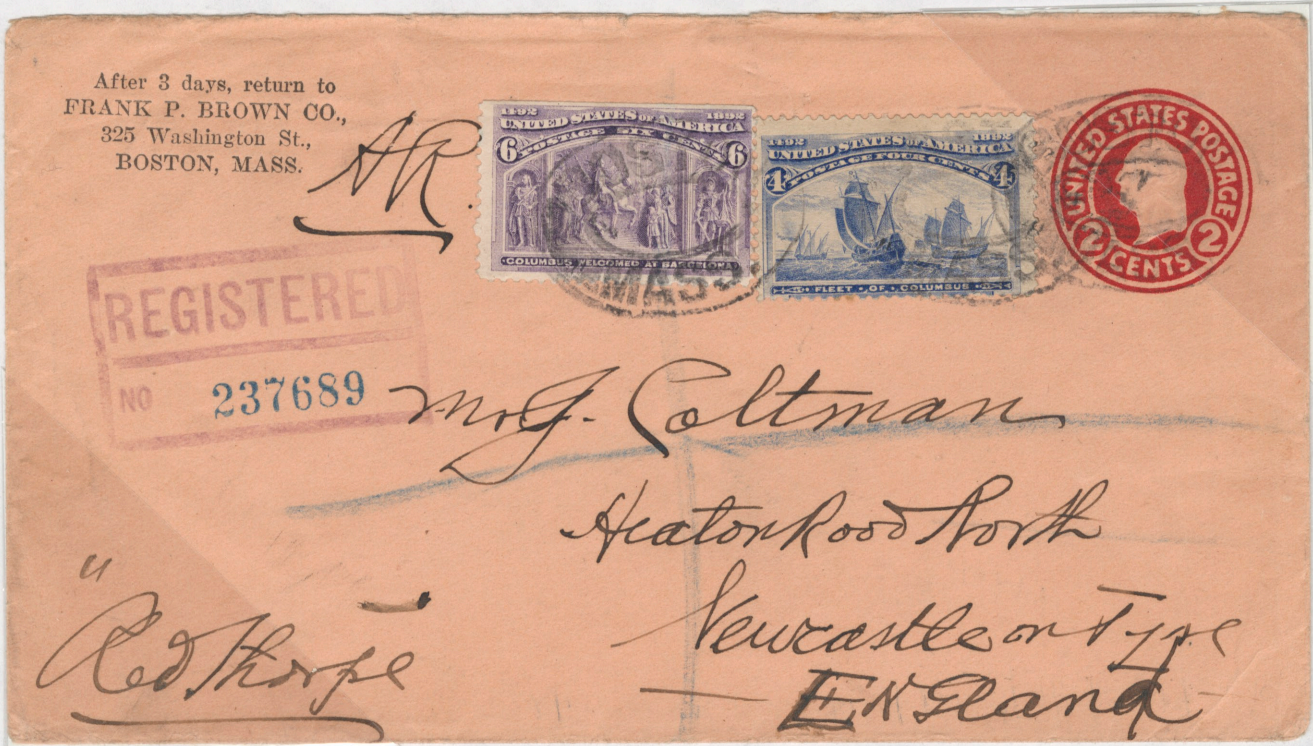 After 3 days, return to
FRANK P. BROWN CO.,
325 Washington St.,
BOSTON, MASS.
AR.
1492 1892
UNITED STATES OF AMERICA
POSTAGE SIX CENTS
6 6
COLUMBUS WELCOMED AT BARCELONA
1492 1892
UNITED STATES OF AMERICA
POSTAGE FOUR CENTS
4 4
FLEET OF COLUMBUS
UNITED STATES POSTAGE
2 CENTS 2
MASS
REGISTERED
NO 237689
Mr J. Coltman
Heaton Road North
Newcastle on Tyne
ENGland
"Red Thorpe